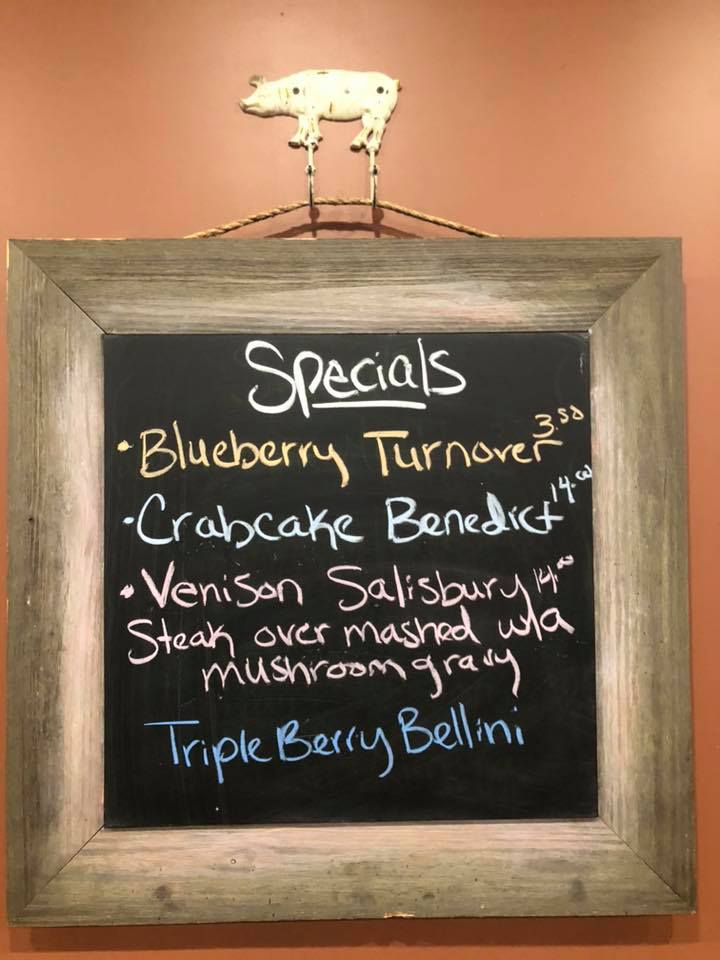 Specials
• Blueberry Turnover 3.50
• Crabcake Benedict 14.00
• Venison Salisbury 14.00
Steak over mashed w/a
mushroom gravy
Triple Berry Bellini